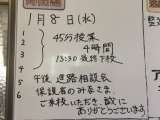 1月8日(水)
1
2
3
4
5
6
45分授業
4時間
13:30 最終下校
午後 進路相談会
保護者のみなさま、
ご来校いただき、誠に
ありがとうございます。